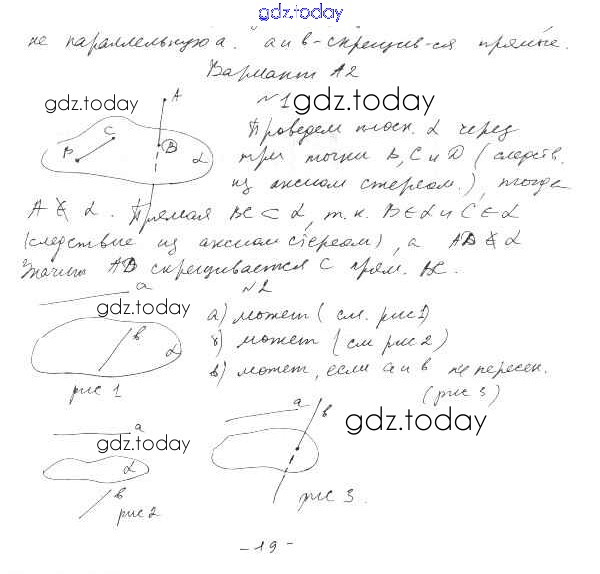 gdz.today
не параллельную a. a и b - скрещив-ся прямые.
Вариант А2
gdz.today
№1 gdz.today
A
C
B
D
α
Проведем плоск. α через
три точки B, C и D (следств.
из аксиом стереом.), тогда
A ∉ α. Прямая BC ⊂ α, т.к. B ∈ α и C ∈ α
(следствие из аксиом стереом), а AD ⊄ α
Значит AD скрещивается с прям. BC.
№2
a
gdz.today
b
α
рис 1
а) может (см. рис 1)
б) может (см рис 2)
в) может, если a и b не пересек.
(рис 3)
a
gdz.today
α
b
рис 2
a
b
gdz.today
рис 3.
- 19 -